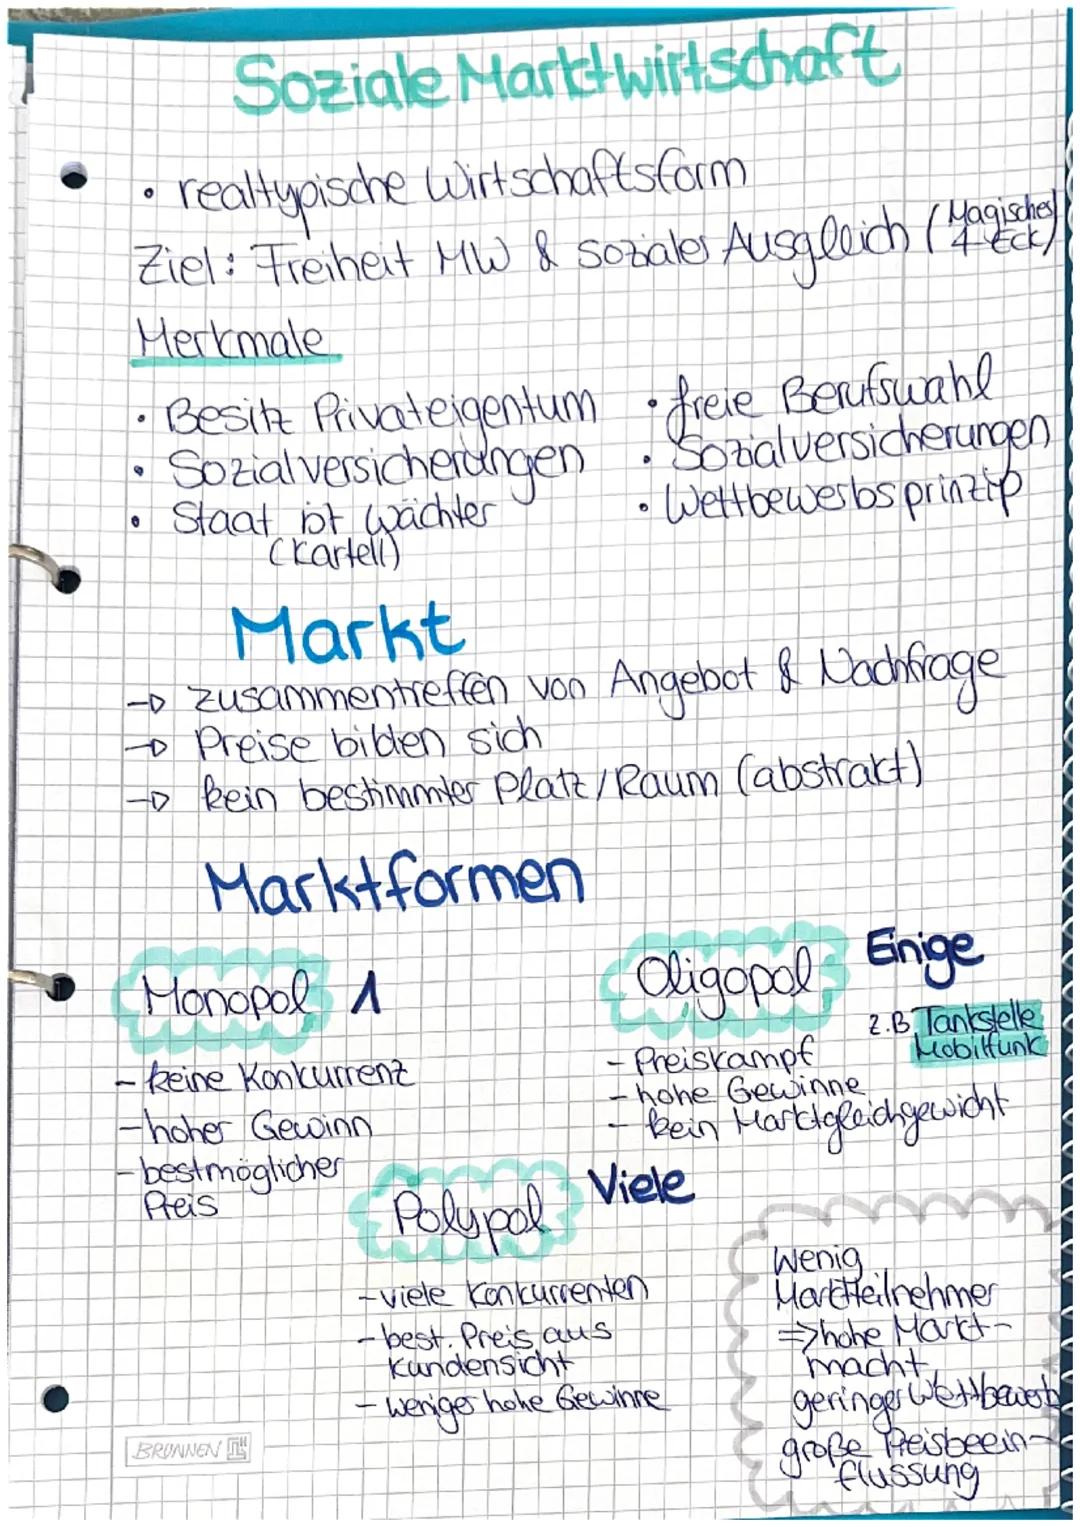 Soziale Marktwirtschaft
• realtypische Wirtschaftsform
Ziel: Freiheit MW & soziales Ausgleich (Magisches 4-Eck)
Merkmale
• Besitz Privateigentum
• Sozialversicherungen
• Staat ist Wächter
(Kartell)
• freie Berufswahl
• Sozialversicherungen
• Wettbewerbsprinzip
Markt
→ zusammentreffen von Angebot & Nachfrage
→ Preise bilden sich
→ kein bestimmter Platz/Raum (abstrakt)
Marktformen
Monopol 1
- keine Konkurrenz
- hoher Gewinn
- bestmöglicher
Preis
Oligopol Einige
z.B Tankstelle
Mobilfunk
- Preiskampf
- hohe Gewinne
- kein Marktgleichgewicht
Polypol Viele
- viele Konkurrenten
- best. Preis aus
Kundensicht
- weniger hohe Gewinne
Wenig
Marktteilnehmer
=> hohe Markt-
macht,
geringer Wettbewerb
große Preisbeein-
flussung
BRUNNEN